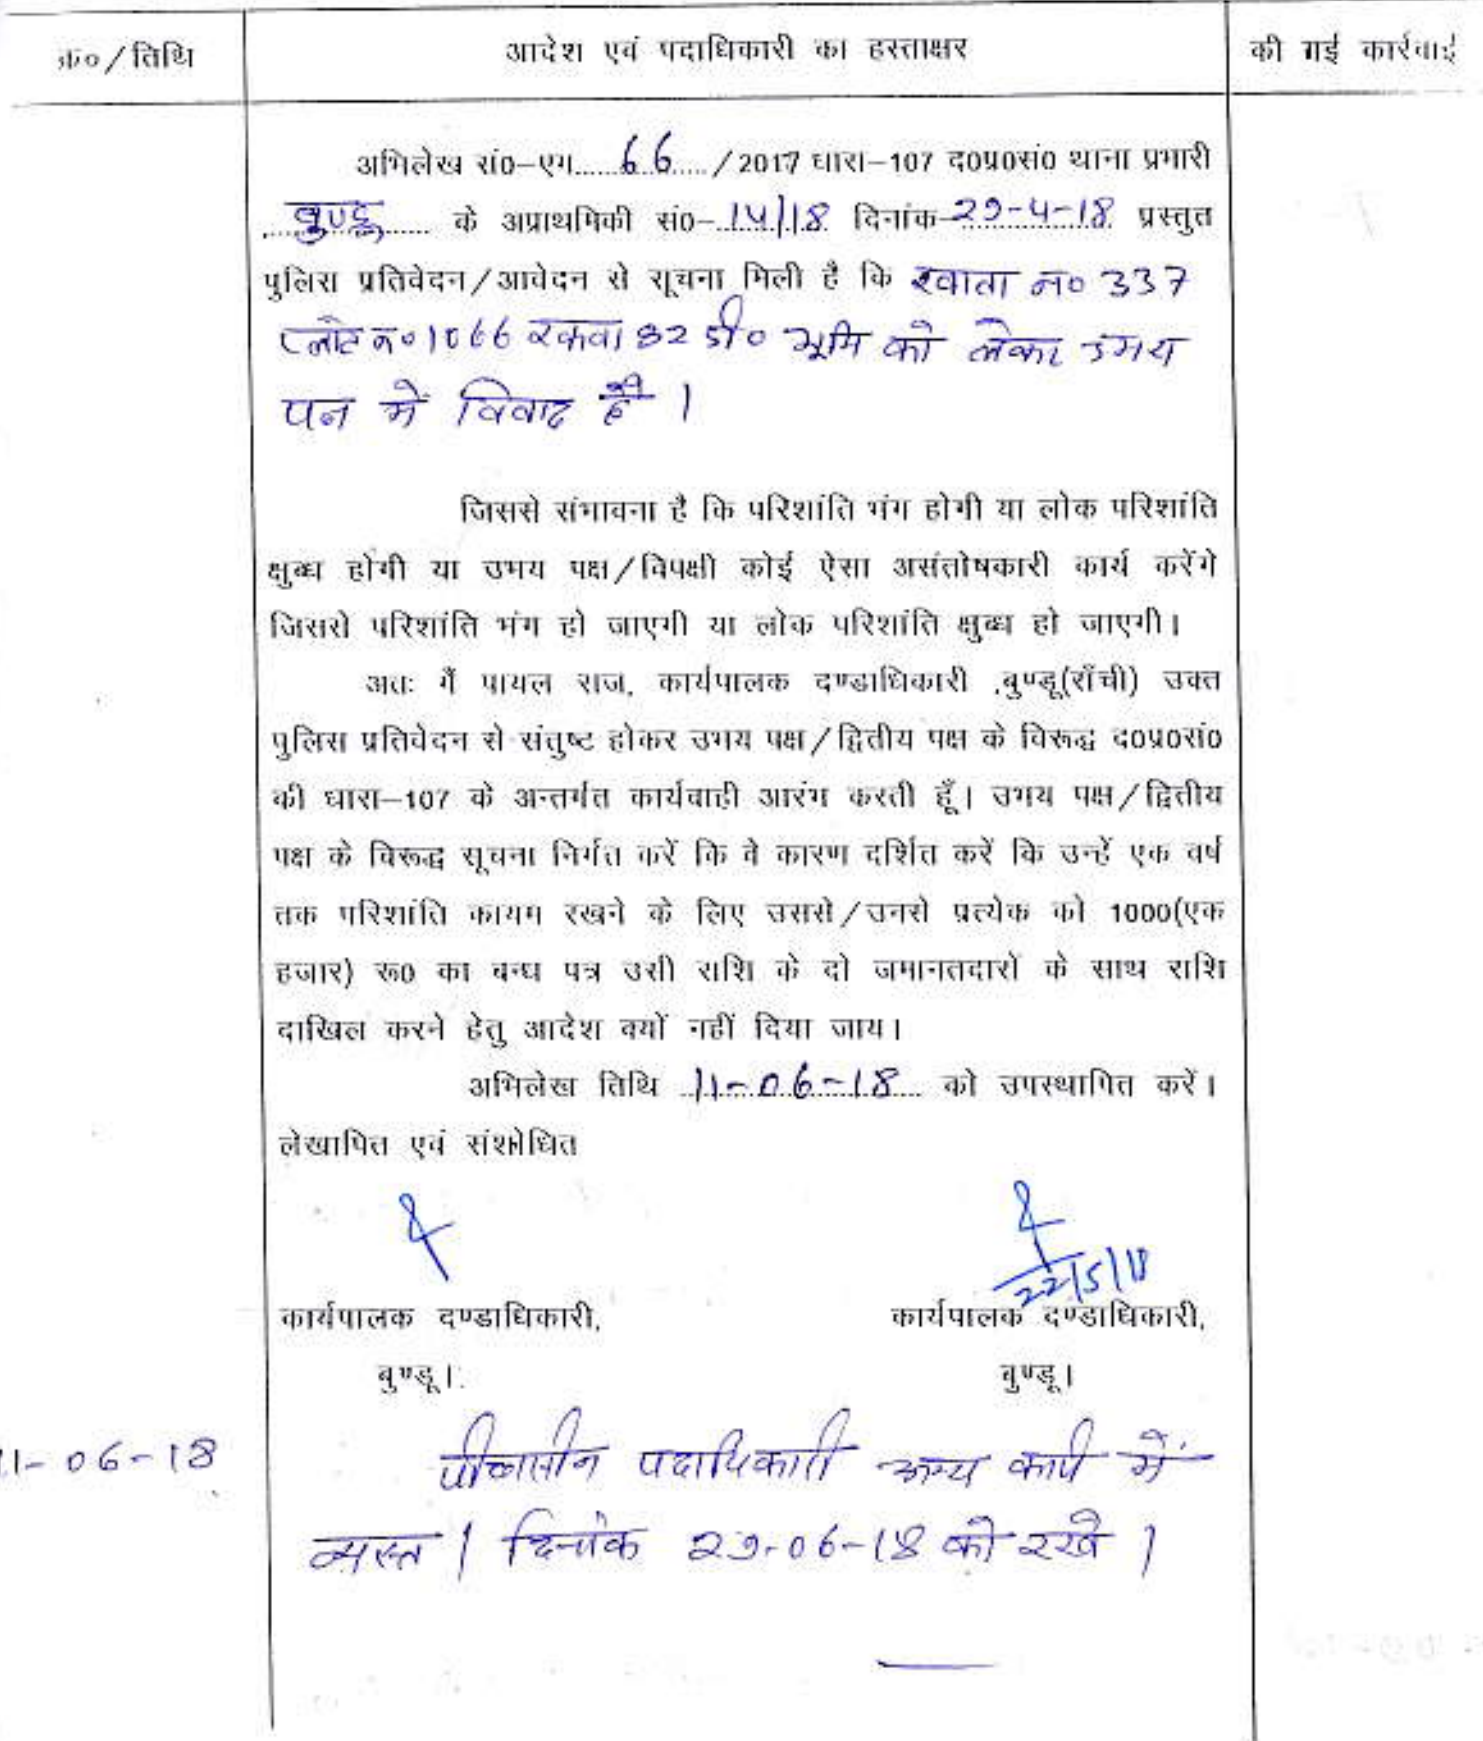 क्र०/तिथि
आदेश एवं पदाधिकारी का हस्ताक्षर
की गई कार्रवाई
अभिलेख सं०-एम.....66...../2017 धारा-107 द०प्र०सं० थाना प्रभारी
बुण्डू के अप्राथमिकी सं०-14/18 दिनांक-29-4-18 प्रस्तुत
पुलिस प्रतिवेदन/आवेदन से सूचना मिली है कि खाता न० 337
प्लोट न० 1066 रकवा 82 डी० भूमि को लेकर उभय
पक्ष में विवाद है।
जिससे संभावना है कि परिशांति भंग होगी या लोक परिशांति
क्षुब्ध होगी या उभय पक्ष/विपक्षी कोई ऐसा असंतोषकारी कार्य करेंगे
जिससे परिशांति भंग हो जाएगी या लोक परिशांति क्षुब्ध हो जाएगी।
अतः मैं पायल राज, कार्यपालक दण्डाधिकारी ,बुण्डू(राँची) उक्त
पुलिस प्रतिवेदन से संतुष्ट होकर उभय पक्ष/द्वितीय पक्ष के विरूद्ध द०प्र०सं०
की धारा-107 के अन्तर्गत कार्यवाही आरंभ करती हूँ। उभय पक्ष/द्वितीय
पक्ष के विरूद्ध सूचना निर्गत करें कि वे कारण दर्शित करें कि उन्हें एक वर्ष
तक परिशांति कायम रखने के लिए उससे/उनसे प्रत्येक को 1000(एक
हजार) रू० का बन्ध पत्र उसी राशि के दो जमानतदारों के साथ राशि
दाखिल करने हेतु आदेश क्यों नहीं दिया जाय।
अभिलेख तिथि 11-06-18 को उपस्थापित करें।
लेखापित एवं संशोधित
22/5/18
कार्यपालक दण्डाधिकारी, कार्यपालक दण्डाधिकारी,
बुण्डू। बुण्डू।
11-06-18 पीठासीन पदाधिकारी अन्य कार्य में
व्यस्त। दिनांक 29-06-18 को रखें।